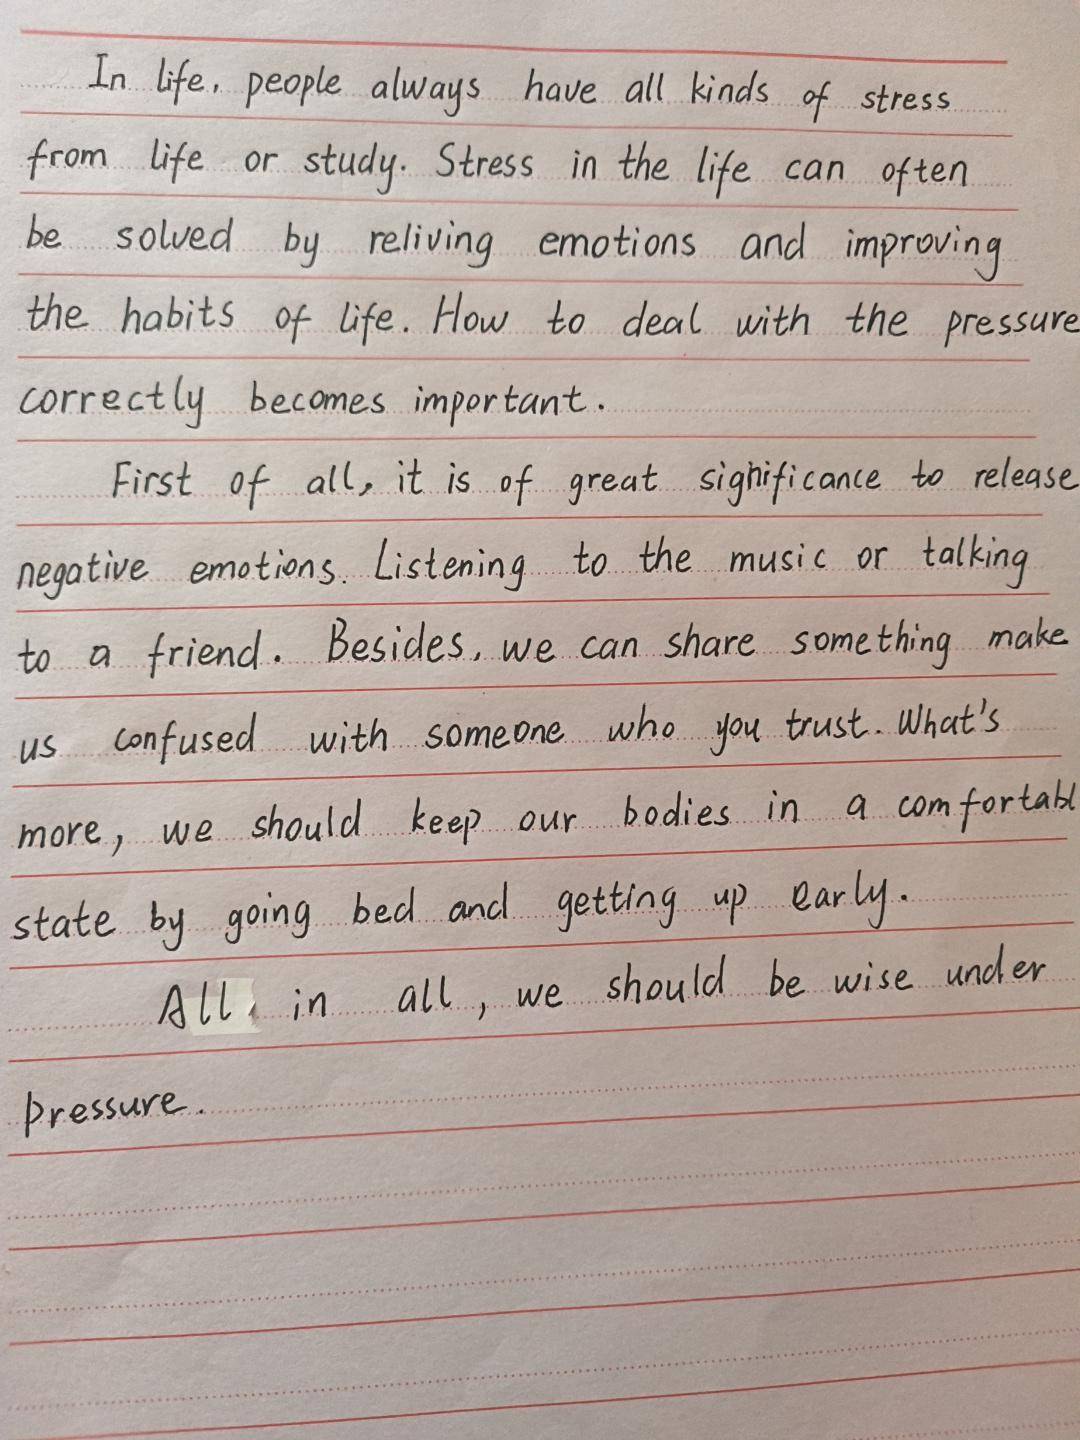 In life, people always have all kinds of stress
from life or study. Stress in the life can often
be solved by reliving emotions and improving
the habits of life. How to deal with the pressure
correctly becomes important.
First of all, it is of great significance to release
negative emotions. Listening to the music or talking
to a friend. Besides, we can share something make
us confused with someone who you trust. What's
more, we should keep our bodies in a comfortabl
state by going bed and getting up early.
All in all, we should be wise under
pressure.